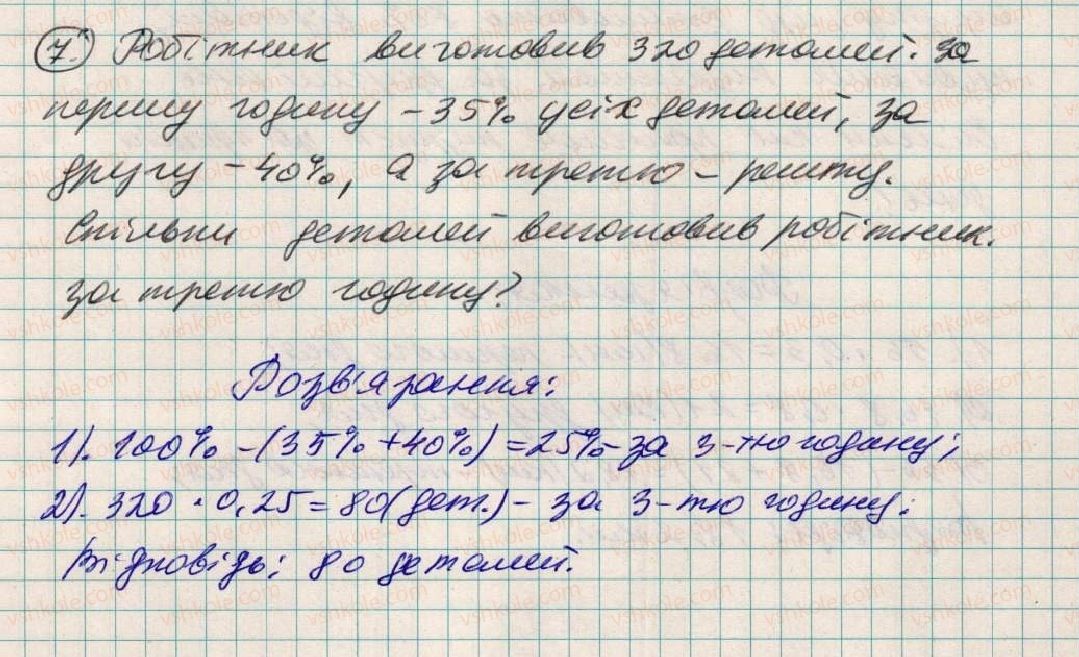 7. Робітник виготовив 320 деталей. За
першу годину - 35% усіх деталей, за
другу - 40%, а за третю - решту.
Скільки деталей виготовив робітник.
за третю годину?
Розв'язання:
1). 100% - (35% + 40%) = 25% - за 3-тю годину;
2). 320 · 0,25 = 80 (дет.) - за 3-тю годину;
Відповідь: 80 деталей.